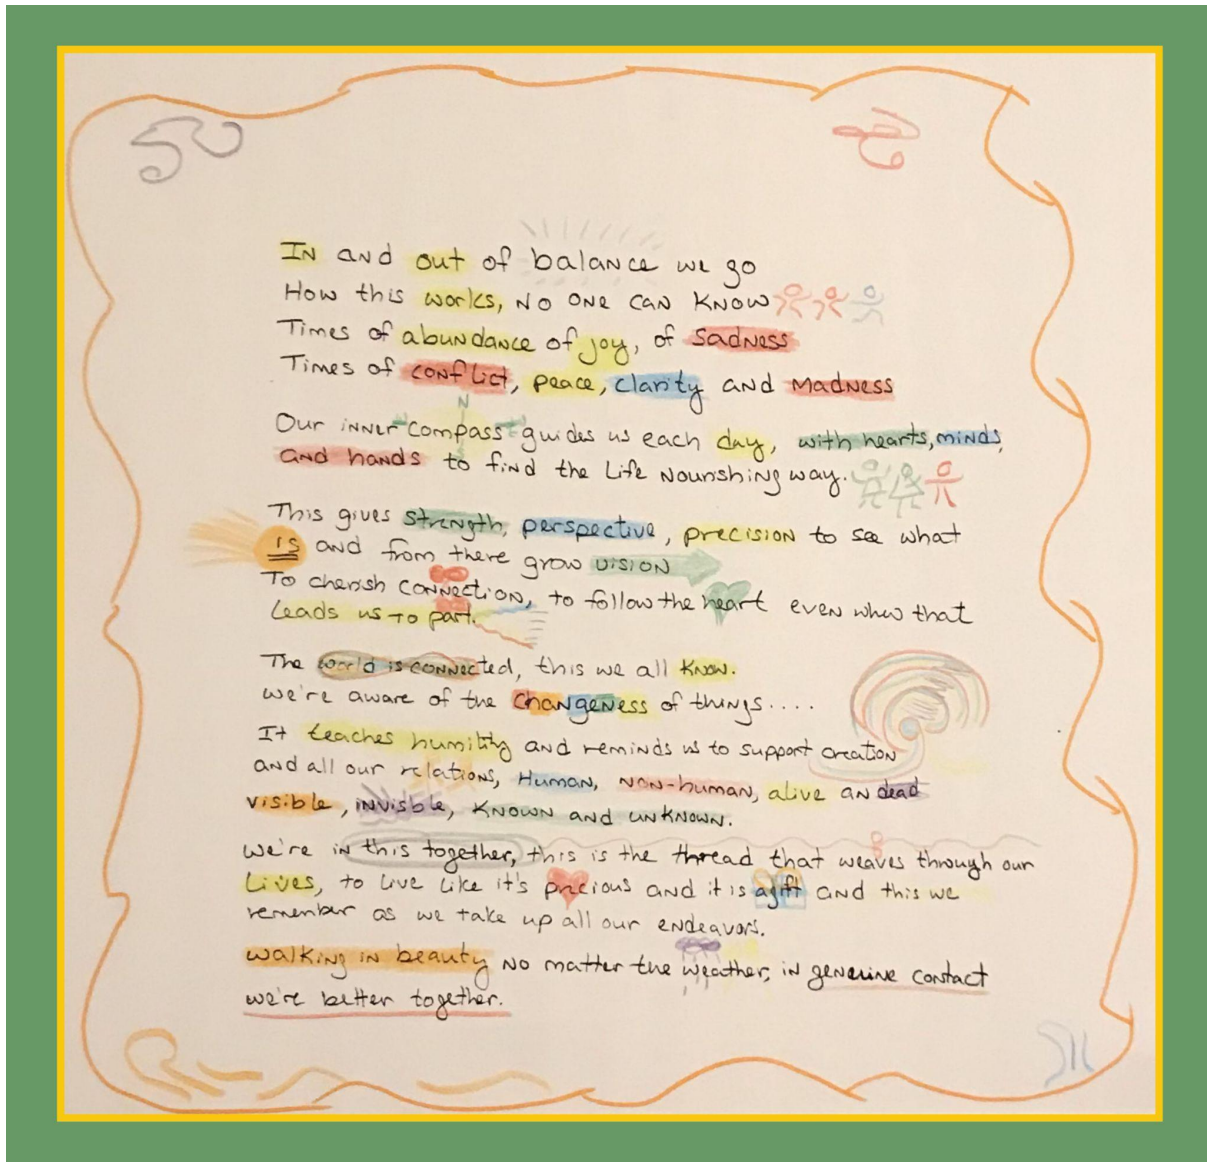 In and out of balance we go
How this works, no one can know
Times of abundance of joy, of sadness
Times of conflict, peace, clarity and madness
N
Our inner compass guides us each day, with hearts, minds,
and hands to find the life nourishing way.
This gives strength, perspective, precision to see what
is and from there grow vision
To cherish connection, to follow the heart even when that
leads us to part.
The world is connected, this we all know.
We're aware of the changeness of things....
It teaches humility and reminds us to support creation
and all our relations, Human, non-human, alive and dead
visible, invisble, known and unknown.
We're in this together, this is the thread that weaves through our
lives, to live like it's precious and it is a gift and this we
remember as we take up all our endeavors.
Walking in beauty no matter the weather, in genuine contact
we're better together.